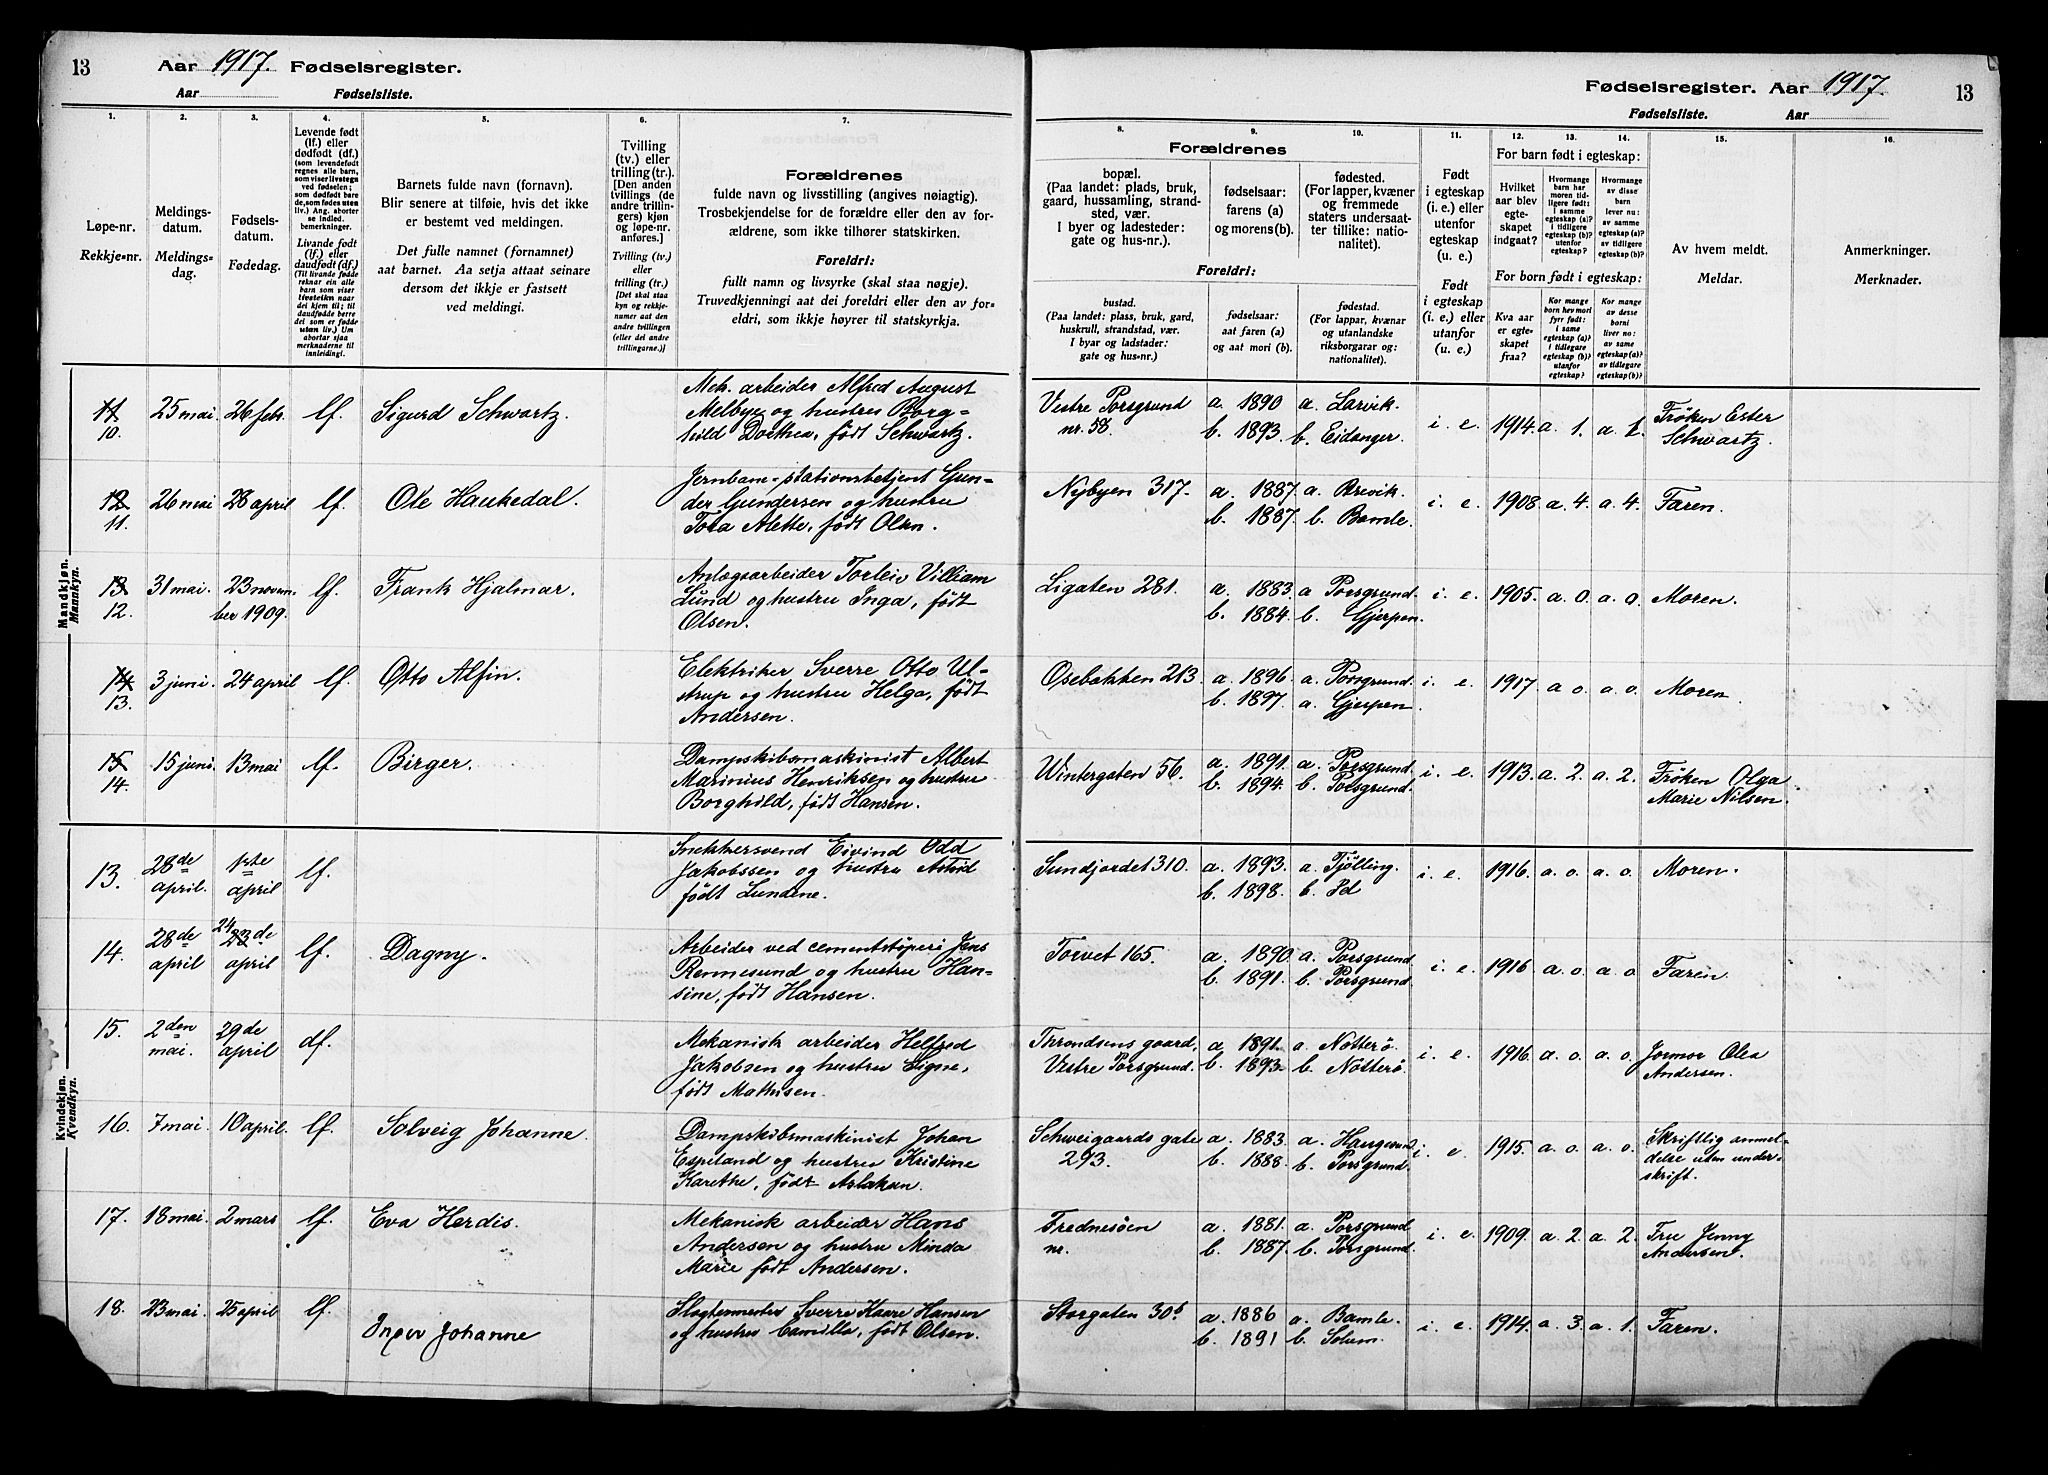 13 Aar 1917. Fødselsregister.
Aar Fødselsliste.
Fødselsregister. Aar 1917. 13
Fødselsliste. Aar
1. 2. 3. 4. 5. 6. 7. 8. 9. 10. 11. 12. 13. 14. 15. 16.
Løpe-nr.
Rekkje=nr.
Meldings-
datum.
Meldings=
dag.
Fødsels-
datum.
Fødedag.
Levende født
(lf.) eller
dødfødt (df.)
(som levendefødt
regnes alle barn,
som viser livstegn
ved fødselen;
som dødfødt bare
de, som fødes uten
liv.) Ang. aborter
se indled.
bemerkninger.
Livande født
(lf.) eller
daudfødt (df.)
(Til livande fødde
reknar ein alle
born som viser
livsteikn naar
dei kjem til; til
daudfødde berre
dei som er fødde
utan liv.) Um
abortar sjaa
merknaderne til
innleidingi.
Barnets fulde navn (fornavn).
Blir senere at tilføie, hvis det ikke
er bestemt ved meldingen.
Det fulle namnet (fornamnet)
aat barnet. Aa setja attaat seinare
dersom det ikkje er fastsett
ved meldingi.
Tvilling
(tv.) eller
trilling(tr.).
[Den anden
tvillings (de
andre trillin-
gers) kjøn
og løpe-nr.
anføres.]
Tvilling (tv.)
eller
trilling (tr.)
[Det skal staa
kyn og rekkje-
numer aat den
andre tvillingen
(eller dei andre
trillingarne.)]
Forældrenes
fulde navn og livsstilling (angives nøiagtig).
Trosbekjendelse for de forældre eller den av for-
ældrene, som ikke tilhører statskirken.
Foreldri:
fullt namn og livsyrke (skal staa nøgje).
Truvedkjenningi aat dei foreldri eller den av for-
eldri, som ikkje høyrer til statskyrkja.
Forældrenes
bopæl.
(Paa landet: plads, bruk,
gaard, hussamling, strand-
sted, vær.
I byer og ladesteder:
gate og hus-nr.).
fødselsaar:
farens (a)
og morens(b).
fødested.
(For lapper, kvæner
og fremmede
staters undersaat-
ter tillike: natio-
nalitet).
Foreldri:
bustad.
(Paa landet: plass, bruk, gard,
huskrull, strandstad, vær.
I byar og ladstader:
gate og hus-nr.)
fødselsaar:
aat faren (a)
og aat mori (b).
fødestad.
(For lappar, kvænar
og utanlandske
riksborgarar og:
nationalitet).
Født
i egteskap
(i. e.) eller
utenfor
egteskap
(u. e.)
Født
i egteskap
(i. e.) eller
utanfor
(u. e.)
For barn født i egteskap:
Hvilket
aar blev
egte-
skapet
indgaat?
Hvormange
barn har
moren tid-
ligere født:
i samme
egteskap (a)?
i tidligere
egteskap (b)?
utenfor
egteskap?
Hvormange
av disse
barn
lever nu:
av samme
egteskap (a)?
av tidligere
egteskap (b)?
For born født i egteskap:
Kva aar
er egte-
skapet
fraa?
Kor mange
born hev mori
fyrr født:
i same
egteskap (a)?
i tidlegare
egteskap (b)?
utanfor
egteskap?
Kor mange
av desse
borni
liver no:
av same
egteskap (a)?
av tidlegare
egteskap (b)?
Av hvem meldt.
Meldar.
Anmerkninger.
Merknader.
Mandkjøn.
Mannkyn.
11 10. 25 mai. 26 febr. lf. Sigurd Schwartz.
Mek. arbeider Alfred August
Melbye og hustru Borg=
hild Dorthea, født Schwartz.
Vestre Porsgrund
nr. 58.
a. 1890 a. Larvik.
b. 1893. b. Eidanger.
i. e. 1914. a. 1. a. 1. Frøken Ester
Schwartz.
12 11. 26 mai 28 april lf. Ole Haukedal.
Jernbane=stationsbetjent Gun=
der Gundersen og hustru
Tora Alette, født Olsen.
Nybyen 317.
a. 1887. a. Brevik.
b. 1887. b. Bamle.
i. e. 1908. a. 4. a. 4. Faren.
13 12. 31 mai. 23 novem=
ber 1909. lf. Frank Hjalmar.
Anlægsarbeider Torleiv Villiam
Lund og hustru Inga, født
Olsen.
Ligaten 281.
a. 1883. a Porsgrund.
b. 1884. b. Gjerpen.
i. e. 1905. a. 0. a. 0. Moren.
14 13. 3 juni. 24 april lf. Otto Alfin.
Elektriker Sverre Otto Ul=
strup og hustru Helga, født
Andersen.
Osebakken 213.
a. 1896. a. Porsgrund.
b. 1897. a. Gjerpen.
i. e. 1917 a 0. a. 0. Moren.
15 14. 15 juni. 13 mai lf. Birger.
Dampskibsmaskinist Albert
Marinius Henriksen og hustru
Borghild, født Hansen.
Wintergaten 56.
a. 1891. a. Porsgrund.
b. 1894. b. Porsgrund.
i. e. 1913. a. 2. a. 2. Frøken Olga
Marie Nilsen.
Kvindekjøn.
Kvendkyn.
13. 28de
april. 1ste
april lf.
Snekkersvend Eivind Odd
Jakobssen og hustru Astrid
født Lundene.
Sundjordet 310.
a. 1893. a. Tjölling.
b. 1898. b. Id
i. e. 1916. a. 0. a. 0. Moren.
14. 28de
april 24 23de
april lf. Dagny.
Arbeider ved cementstøperi Jens
Rennesund og hustru Han=
sine, født Hansen.
Torvet 165.
a. 1890. a. Porsgrund
b. 1891. b. Porsgrund.
i. e. 1916 a. 0. a. 0. Faren.
15. 2den
mai. 29de
april df.
Mekanisk arbeider Helfred
Jakobsen og hustru Signe,
født Mathisen.
Throndsens gaard,
Vestre Porsgrund.
a. 1891. a. Nötterö.
b. 1893. b. Nötterö.
i. e. 1916. a. 0. a. 0. Jormor Olea
Andersen.
16. 7 mai. 10 april. lf. Solveig Johanne.
Dampskibsmaskinist Johan
Espeland og hustru Kristine
Karethe, født Aslaksen.
Schweigaards gate
293.
a. 1883. a. Haugesund
b. 1888. b. Porsgrund.
i. e. 1915. a. 0. a. 0. Skriftlig anmel=
delse uten under=
skrift.
17. 18 mai. 2 mars lf. Eva Herdis.
Mekanisk arbeider Hans
Andersen og hustru Minda
Marie født Andersen.
Frednesöen
nr.
a. 1881. a. Porsgrund
b. 1887. b. Porsgrund.
i. e. 1909. a. 2. a. 2. Frue Jenny
Andersen.
18. 23 mai. 25 april lf. Inger Johanne
Slagtermester Sverre Kaare Hansen
og hustru Camilla, født Olsen.
Storgaten 30b
a. 1886 a. Bamle.
b. 1891 b. Solum.
i. e. 1914. a. 3. a. 1. Faren.